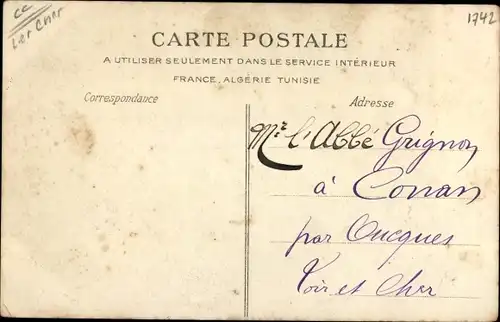 CC
1742
CARTE POSTALE
A UTILISER SEULEMENT DANS LE SERVICE INTÉRIEUR
FRANCE, ALGÉRIE TUNISIE
Correspondance
Adresse
Mr. l'Abbé Grignon
à Conan
par Oucques
Loir et Cher